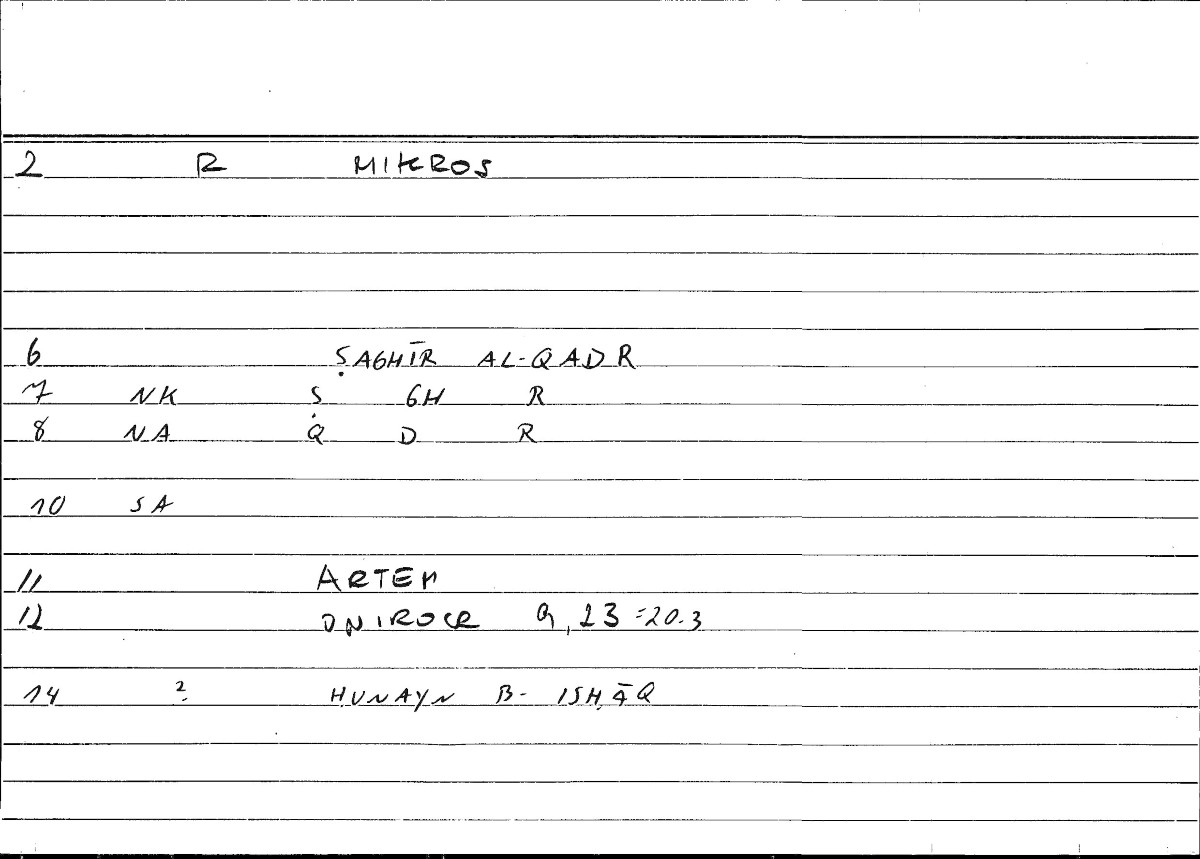 2 R MIKROS
6 ṢAGHĪR AL-QADR
7 NK Ṣ GH R
8 NA Q D R
10 SA
11 ARTEM
12 ONIROCR 23 = 20.3
14 ? ḤUNAYN B- ISḤĀQ